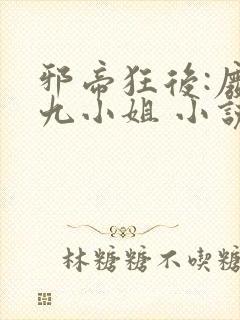 邪帝狂後:廢
九小姐 小說
林糖糖不喫糖